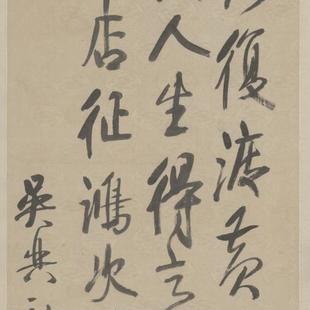 復渡黃
人生得
店征鴻次
吳興